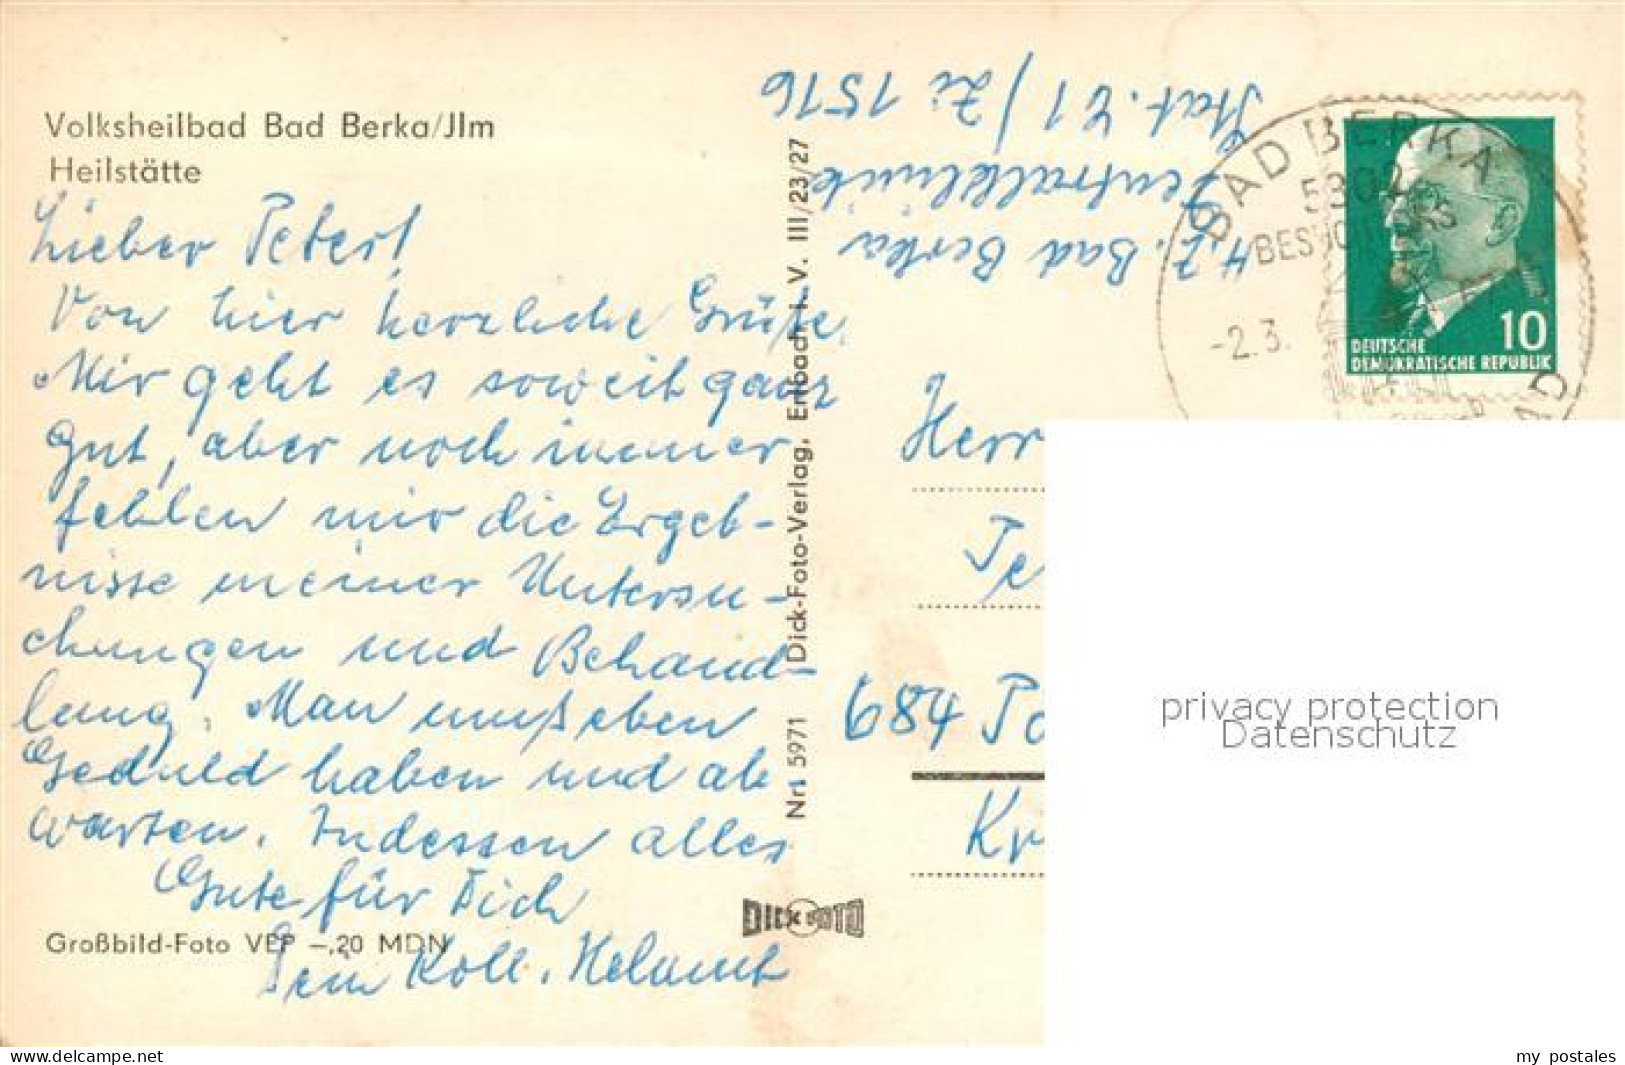 Volksheilbad Bad Berka/Jlm
Heilstätte
Lieber Peter!
Von hier herzliche Grüße.
Mir geht es soweit ganz
gut, aber noch immer
fehlen mir die Ergeb-
nisse meiner Untersu-
chungen und Behand-
lung. Man muß eben
Geduld haben und ab
warten. Indessen alles
Gute für Dich
Dein Koll. Helmut
Großbild-Foto VEP –,20 MDN
Nr. 5971 Dick-Foto-Verlag, Erlbach i. V. III/23/27
DICK FOTO
H.Z. Bad Berka
Zentralklinik
Stat. Z1 / Zi 1516
BAD BERKA
5302
-2.3.
10
DEUTSCHE
DEMOKRATISCHE REPUBLIK
Herr
Te
684 Pö
Kr
privacy protection
Datenschutz
www.delcampe.net
my postales